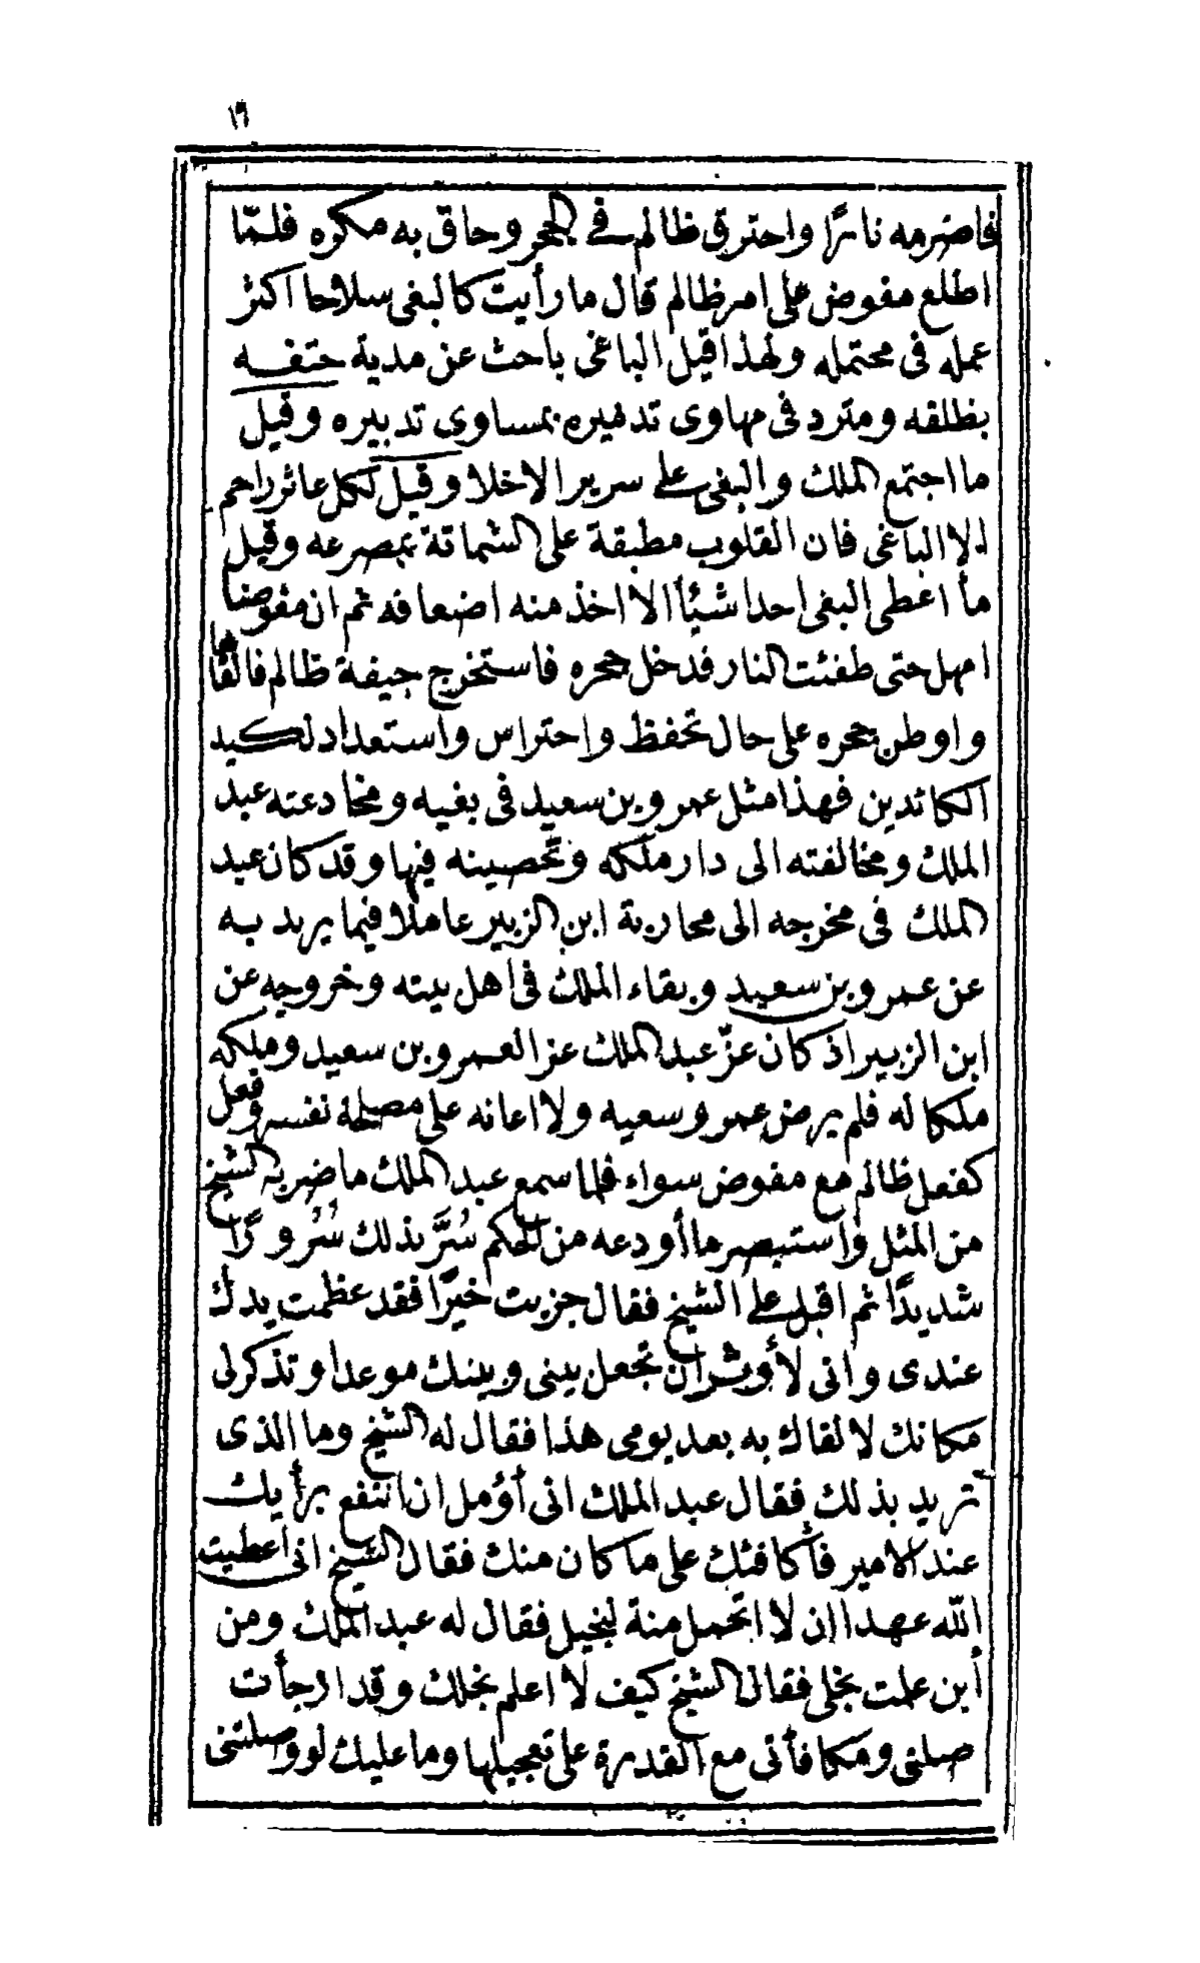 ١٦
فاضرمه نارًا واحترق ظالم في الحجر وحاق به مكره فلمّا
اطلع مفوض على امر ظالم قال ما رأيت كالبغى سلاحا اكثر
عمله فى محتمله ولهذا قيل الباغى باحث عن مدية حتفه
بظلفه ومترد فى مهاوى تدميره بمساوى تدبيره وقيل
ما اجتمع الملك والبغى على سرير الاخلا وقيل لكل عاثر راحم
الا الباغى فان القلوب مطبقة على الشماتة بمصرعه وقيل
ما اعطى البغى احدا شيئا الا اخذ منه اضعافه ثم ان مفوضا
امهل حتى طفئت النار فدخل جحره فاستخرج جيفة ظالم فالقاها
واوطن جحره على حال تحفظ واحتراس واستعداد لكيد
الكائدين فهذا مثل عمرو بن سعيد فى بغيه ومخادعته عبد
الملك ومخالفته الى دار ملكه وتحصينه فيها وقد كان عبد
الملك فى مخرجه الى محاربة ابن الزبير عاملا فيما يريد به
عن عمرو بن سعيد وبقاء الملك فى اهل بيته وخروجه عن
ابن الزبير اذ كان عزّ عبد الملك عز العمرو بن سعيد وملكه
ملكا له فلم يرض عمرو سعيه ولا اعانه على مصلحة نفسه وفعل
كفعل ظالم مع مفوض سواء فلما سمع عبد الملك ما ضربه الشيخ
من المثل واستبصر ما أودعه من الحكم سُرَّ بذلك سُرُورًا
شديدًا ثم اقبل على الشيخ فقال جزيت خيرًا فقد عظمت يدك
عندى وانى لأوثر ان تجعل بينى وبينك موعدا وتذكر لى
مكانك لالقاك به بعد يومى هذا فقال له الشيخ وما الذى
تريد بذلك فقال عبد الملك انى أؤمل ان انتفع برأيك
عند الامير فأكافئك على ما كان منك فقال الشيخ انى اعطيت
الله عهدا ان لا اتحمل منة لبخيل فقال له عبد الملك ومن
أين علمت بخلى فقال الشيخ كيف لا اعلم بخلك وقد ارجأت
صلتى ومكافأتى مع القدرة على تعجيلها وما عليك لو وصلتنى